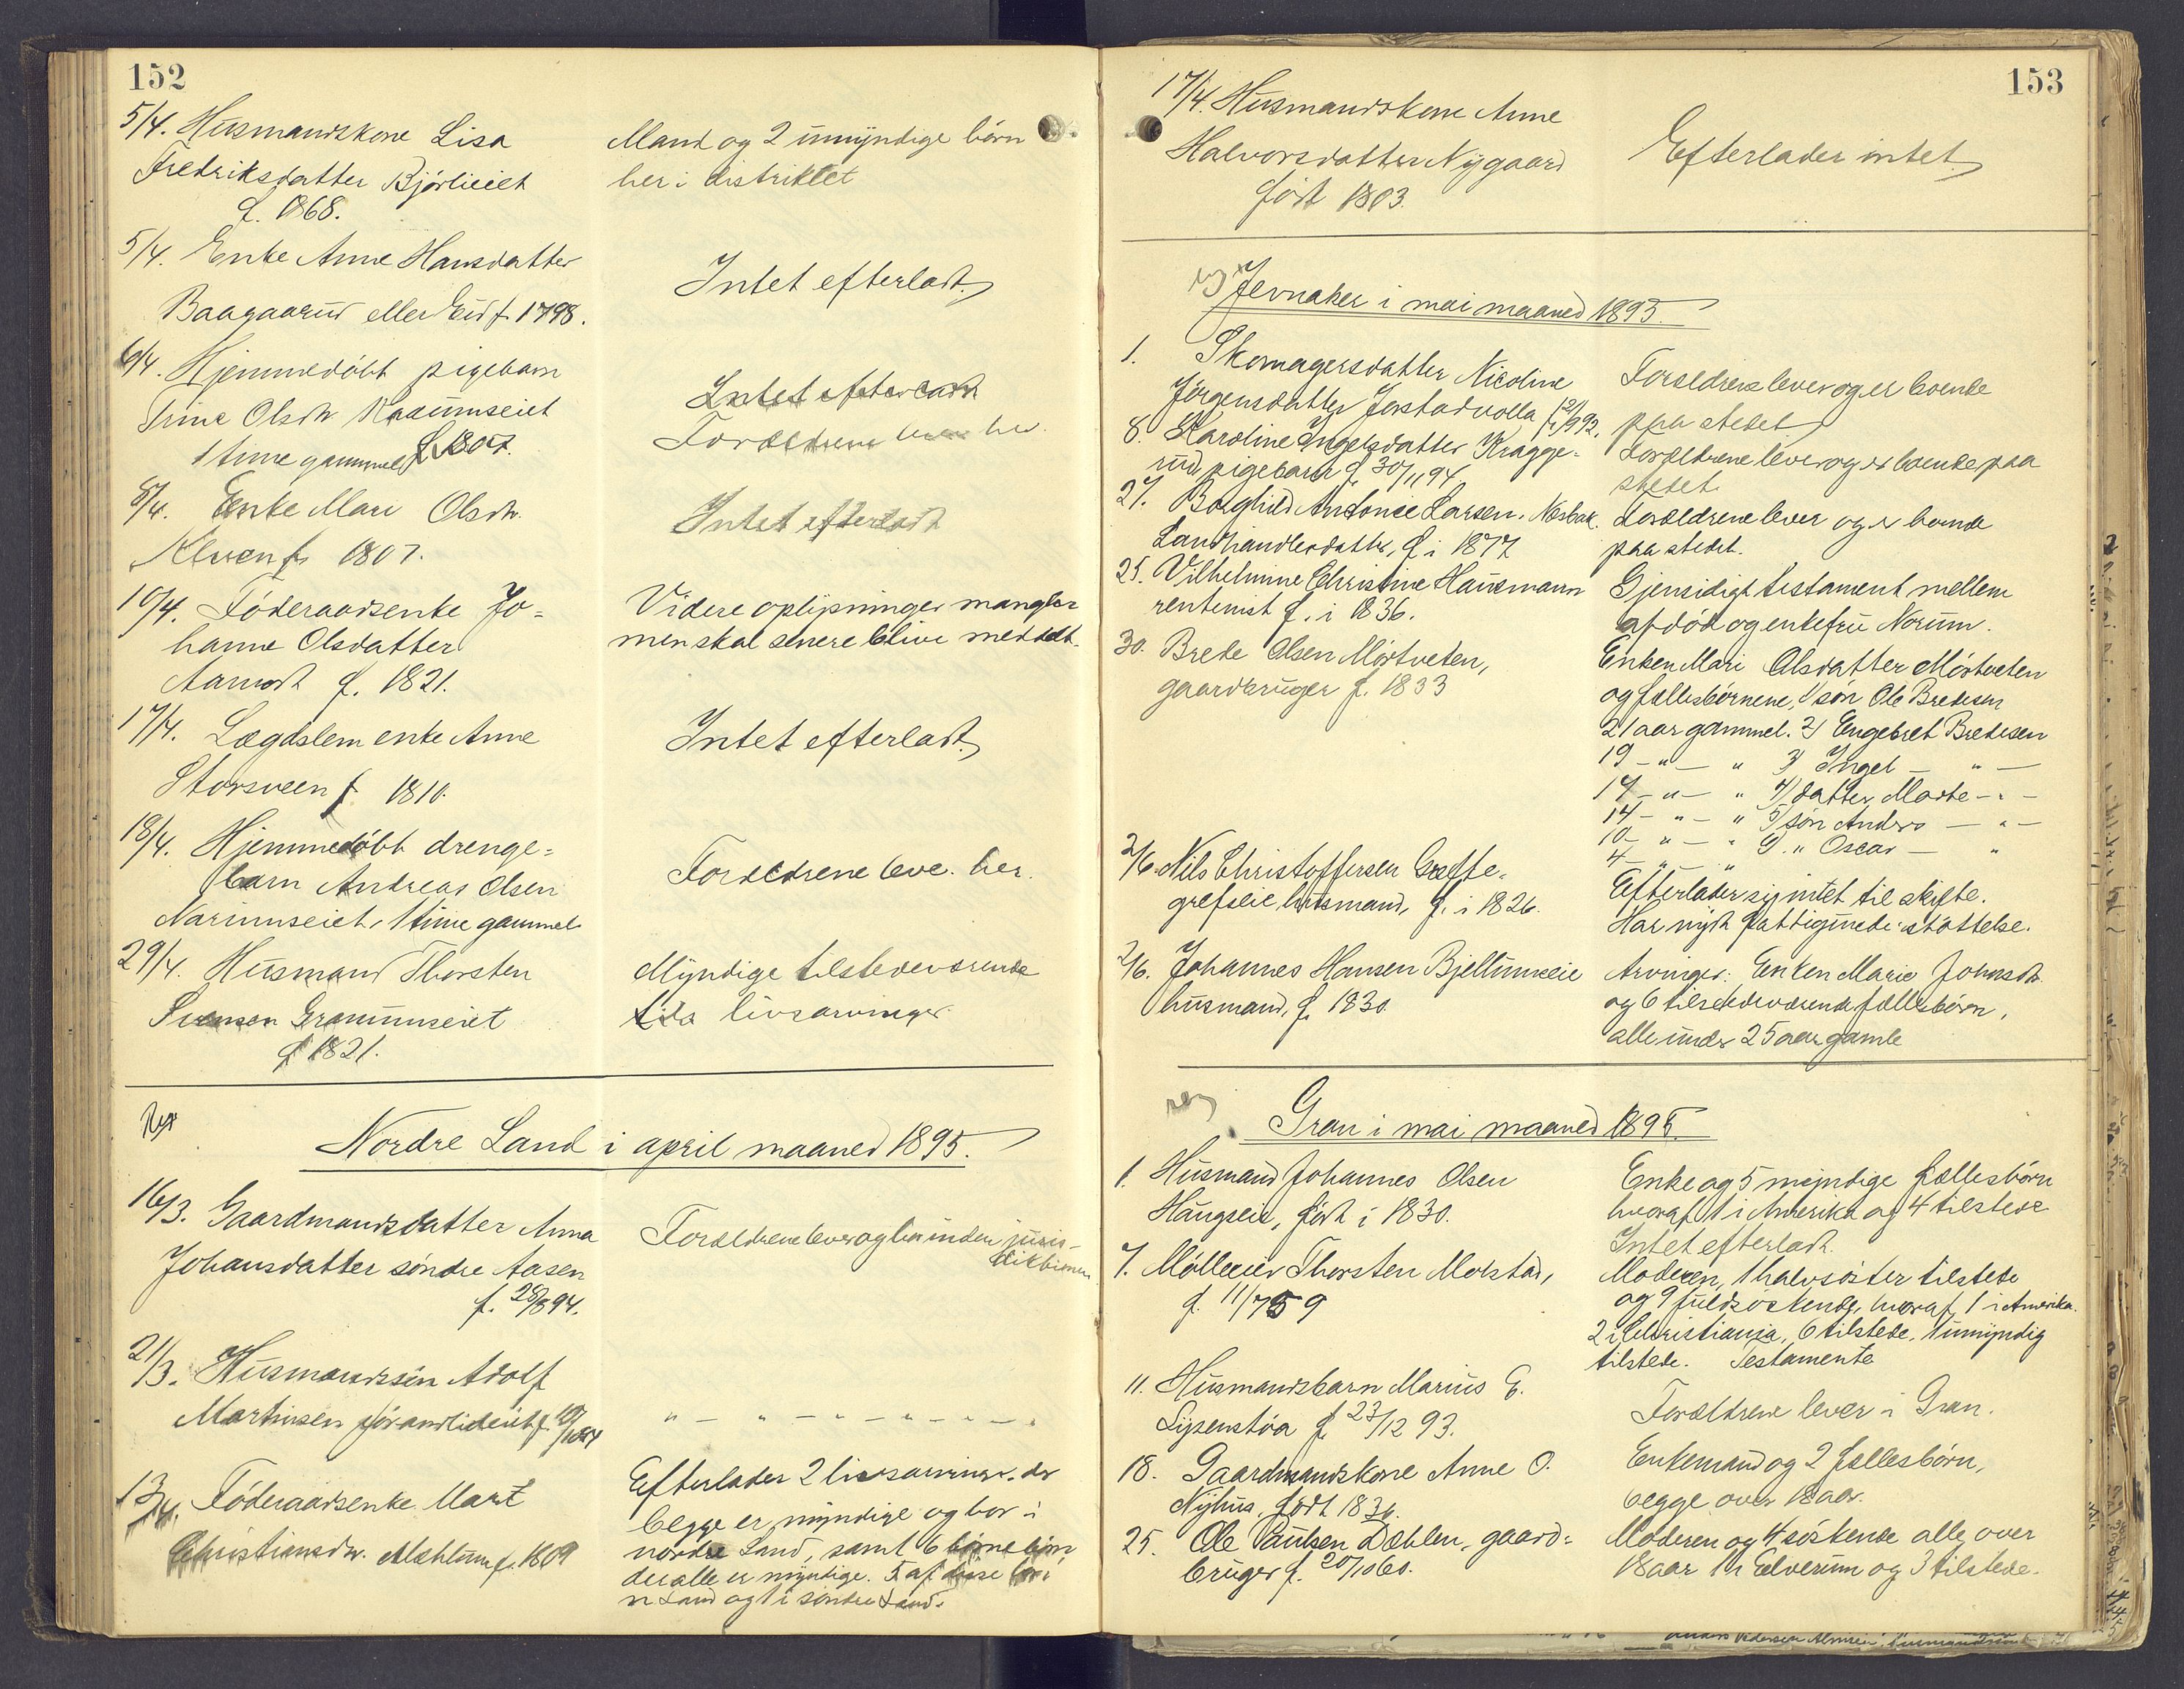 152
5/4. Husmandskone Lisa
Fredriksdatter Bjørlieiet
f. 1868.
Mand og 2 umyndige børn
her i distriktet
5/4. Enke Anne Hansdatter
Baagaarud eller Eid f. 1798.
Intet efterladt.
6/4. Hjemmedøbt pigebarn
Trine Olsdtr.
1 time gammel
Intet efterladt
Forældrene her.
8/4. Enke Mari Olsdtr.
Elven f. 1807.
Intet efterladt
10/4. Føderaadsenke Jo-
hanne Olsdatter
Aamodt f. 1821.
Videre oplysninger mangler
men skal senere blive meddelt.
17/4. Lægdslem enke Anne
Storsveen f. 1810.
Intet efterladt.
18/4. Hjemmedøbt drenge-
barn Andreas Olsen
Narumseiet, 1 time gammel
Forældrene leve her.
29/4. Husmand Thorsten
Svensen Granumseiet
f 1821.
Myndige tilstedeværende
livsarvinger.
Reg
Nordre Land i april maaned 1895.
16/3. Gaardmandsdatter Anna
Johansdatter søndre Aasen
f. 28/8 94.
Forældrene lever og bor inden juris-
diktionen
21/3. Husmandssøn Adolf
Martinsen
" — " — " — " — " — "
13/4. Føderaadsenke Marit
Christiansdtr. Mæhlum f. 1809
Efterlader 2 livsarvinger, der
begge er myndige og bor i
nordre Land, samt 6 børnebørn
der alle er myndige. 5 af disse bor i
n Land og 1 i søndre Land.
153
17/4. Husmandskone Anne
Halvorsdatter Nygaard
født 1803.
Efterlader intet
reg
Jevnaker i mai maaned 1895.
1. Skomagersdatter Nicoline
Jørgensdatter Jorstadvolla
Forældrene lever og er boende
paa stedet
8. Karoline Ingelsdatter Kragge-
rud pigebarn f. 30/11 94
Forældrene lever og er boende paa
stedet.
27. Borghild Antonie Larsen, Næsbak.
Landhandlerdatter, f. i 1877
Forældrene lever og er boende
paa stedet.
25. Vilhelmine Christine Hausmann
rentenist f. i 1836.
Gjensidigt testament mellem
afdød og enkefru Norum.
30. Brede Olsen Mørtveten,
gaardbruger f. 1833
Enken Mari Olsdatter Mørtveten
og fællesbørnene, 1/ søn Ole Bredesen
21 aar gammel. 2/ Engebret Bredesen
19 — " — " 3/ Ingel — " —
17 — " — " 4/ datter Marte — " —
14 — " — " 5/ søn Anders — " —
10 — " — " 6/ " Oscar — "
4 — " — "
2/6. Nils Christoffersen Græfte-
grefseie, husmand, f. i 1826.
Efterlader sig intet til skifte.
Har nydt fattigunderstøttelse.
2/6. Johannes Hansen Bjellumseie
husmand, f. 1830.
Arvinger: Enken Marie Johnsdtr.
og 6 tilstedeværende fællesbørn,
alle under 25 aar gamle
reg
Gran i mai maaned 1895.
1. Husmand Johannes Olsen
Haugseie, født i 1830.
Enke og 5 myndige fællesbørn
hvoraf 1 i Amerika og 4 tilstede
Intet efterladt.
7. Mølleeier Thorsten Molstad,
f. 11/7 59
Moderen, 1 halvsøster tilstede
og 9 fuldsøskende, hvoraf 1 i Amerika.
2 i Christiania, 6 tilstede, 1 umyndig
tilstede. Testamente
11. Husmandsbarn Marius E.
Lysenstøa f. 23/12 93.
Forældrene lever i Gran.
18. Gaardmandskone Anne O.
Nyhus, født 1836.
Enkemand og 2 fællesbørn,
begge over 18 aar.
25. Ole Paulsen Dæhlen, gaard-
bruger f. 20/10 60.
Moderen og 4 søskende alle over
18 aar 1 i Elverum og 3 tilstede.